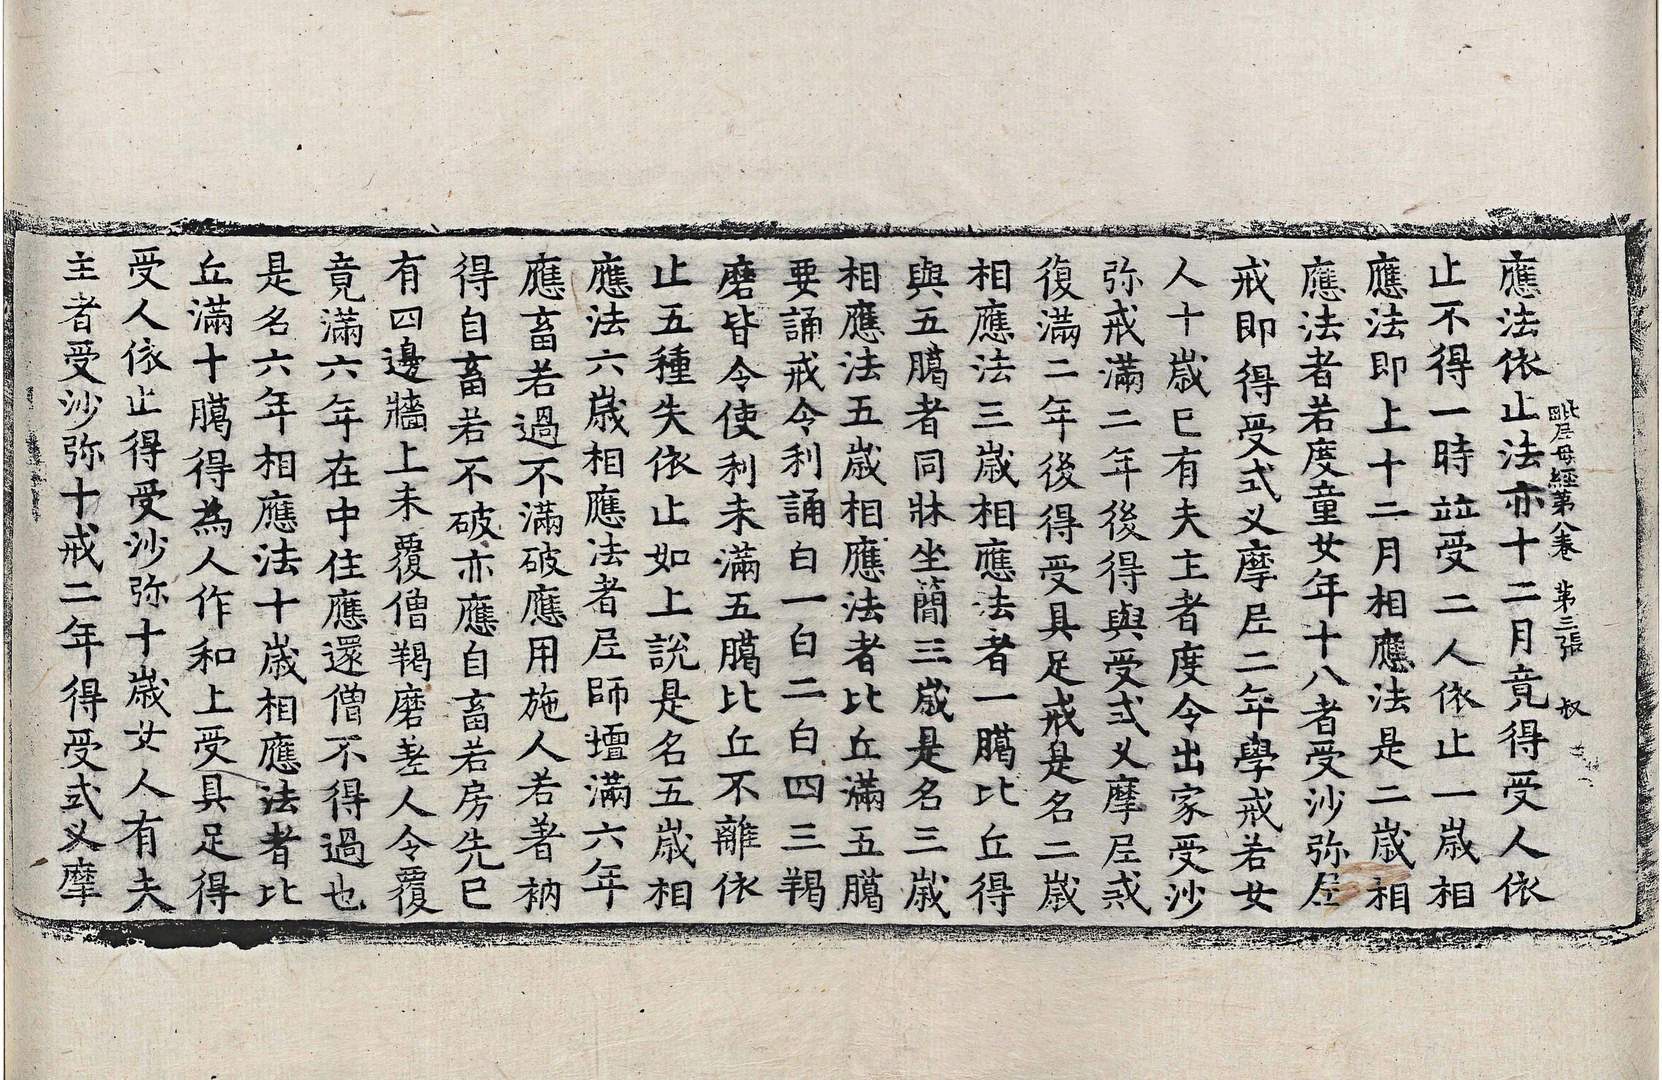 毗尼母經第八卷 第三張 叔
應法依止法亦十二月竟得受人依
止不得一時並受二人依止一歲相
應法即上十二月相應法是二歲相
應法者若度童女年十八者受沙弥尼
戒即得受式叉摩尼二年學戒若女
人十歲已有夫主者度令出家受沙
弥戒滿二年後得與受式叉摩尼戒
復滿二年後得受具足戒是名二歲
相應法三歲相應法者一臈比丘得
與五臈者同牀坐簡三歲是名三歲
相應法五歲相應法者比丘滿五臈
要誦戒令利誦白一白二白四三羯
磨皆令使利未滿五臈比丘不離依
止五種失依止如上說是名五歲相
應法六歲相應法者尼師壇滿六年
應畜若過不滿破應用施人若著衲
得自畜若不破亦應自畜若房先已
有四邊牆上未覆僧羯磨差人令覆
竟滿六年在中住應還僧不得過也
是名六年相應法十歲相應法者比
丘滿十臈得為人作和上受具足得
受人依止得受沙弥十歲女人有夫
主者受沙弥十戒二年得受式叉摩